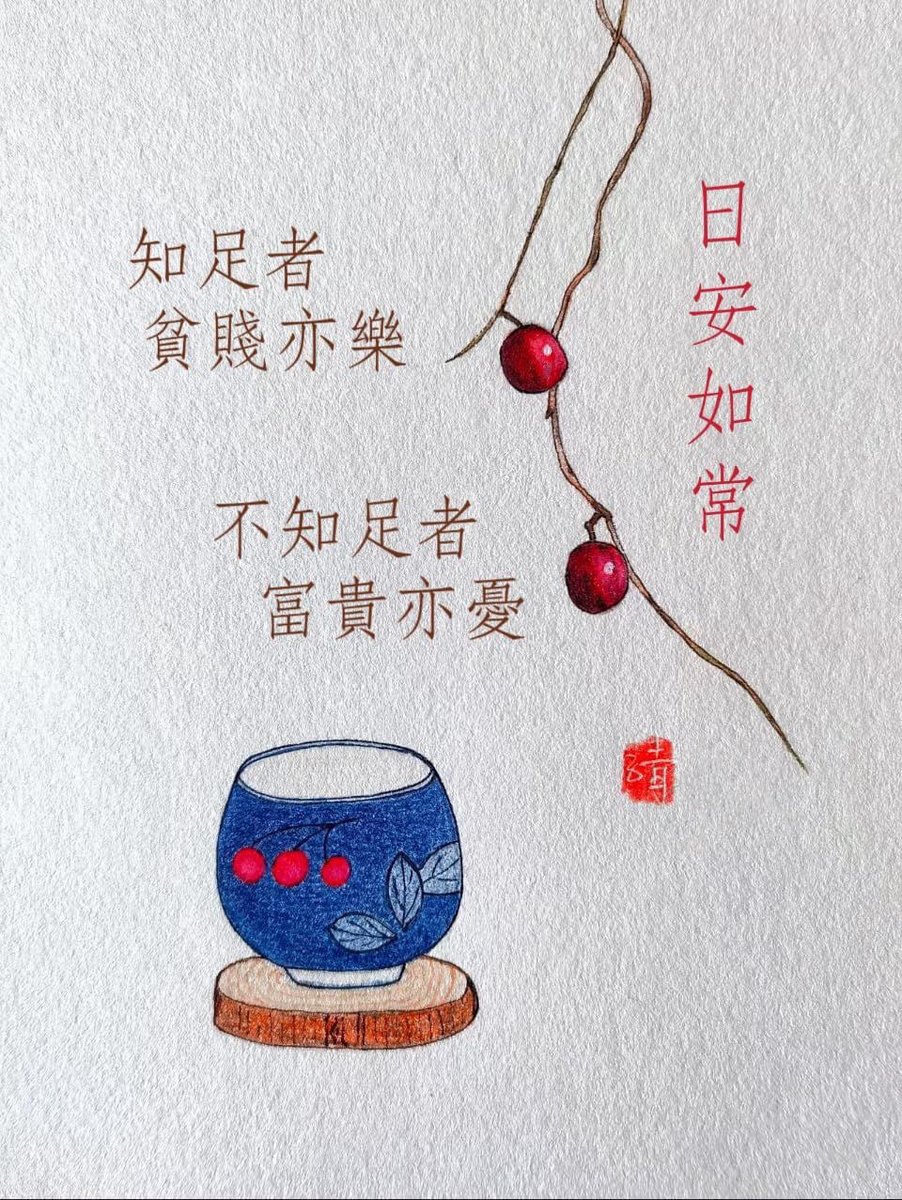 日安如常
知足者
貧賤亦樂
不知足者
富貴亦憂